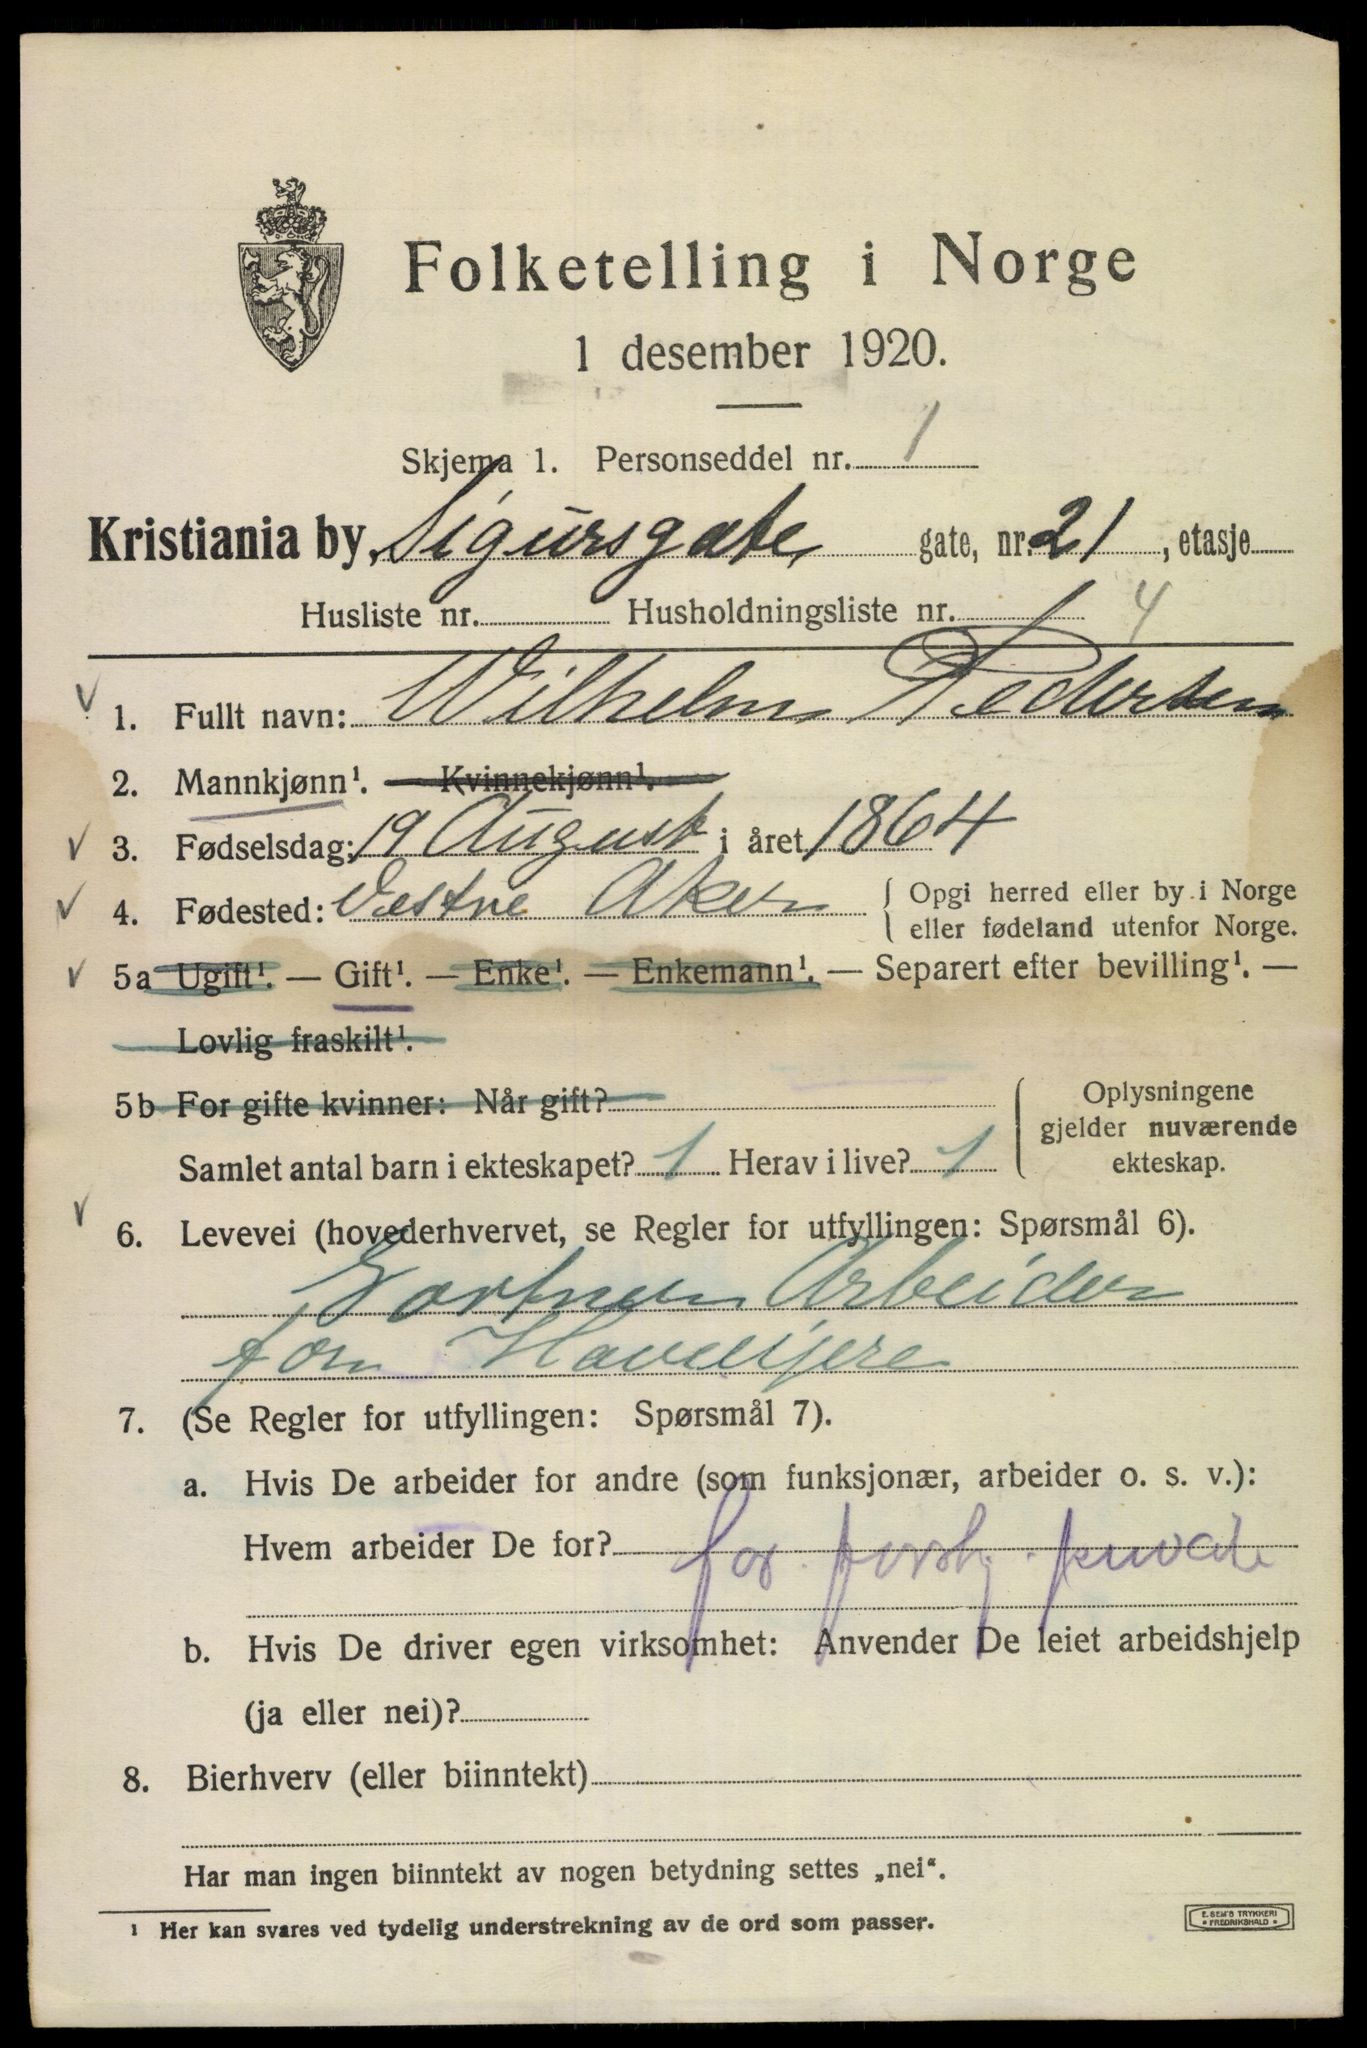 Folketelling i Norge
1 desember 1920.
Skjema 1. Personseddel nr. 1
Kristiania by, Sigursgate, gate, nr. 21, etasje
Husliste nr. Husholdningsliste nr. 1 4
1. Fullt navn: Wilhelm Pedersen
2. Mannkjønn¹. — Kvinnekjønn¹.
3. Fødselsdag: 19 August i året 1864
4. Fødested: Vestre Aker { Opgi herred eller by i Norge
eller fødeland utenfor Norge.
5a Ugift¹. — Gift¹. — Enke¹. — Enkemann¹. — Separert efter bevilling¹. —
Lovlig fraskilt¹.
5b For gifte kvinner: Når gift?
Samlet antal barn i ekteskapet? 1 Herav i live? 1
Oplysningene
gjelder nuværende
ekteskap.
6. Levevei (hovederhvervet, se Regler for utfyllingen: Spørsmål 6).
Gartner Arbeider
for Haveeijere
7. (Se Regler for utfyllingen: Spørsmål 7).
a. Hvis De arbeider for andre (som funksjonær, arbeider o. s. v.):
Hvem arbeider De for? for forskj. private
b. Hvis De driver egen virksomhet: Anvender De leiet arbeidshjelp
(ja eller nei)?
8. Bierhverv (eller biinntekt)
Har man ingen biinntekt av nogen betydning settes „nei“.
¹ Her kan svares ved tydelig understrekning av de ord som passer.
E. SEM'S TRYKKERI
• FREDRIKSHALD •